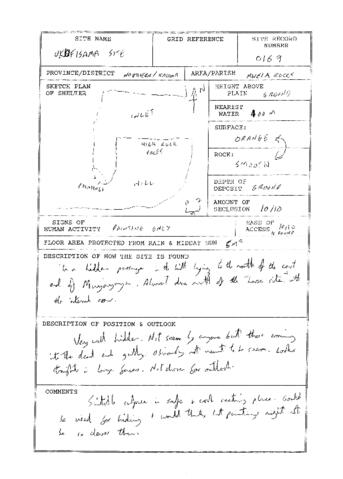 SITE NAME GRID REFERENCE SITE RECORD NUMBER
SITE 0169
PROVINCE/DISTRICT NORTHERN/ AREA/PARISH ROCKS
SKETCH PLAN OF SHELTER
N
HEIGHT ABOVE PLAIN GROUND
NEAREST WATER 400 m
INLET
SURFACE:
ORANGE
HIGH ROCK
ROCK:
SMOOTH
PAINTINGS
HILL
DEPTH OF DEPOSIT GROUND
AMOUNT OF SECLUSION 10/10
SIGNS OF HUMAN ACTIVITY PAINTING ONLY
EASE OF ACCESS
FLOOR AREA PROTECTED FROM RAIN & MIDDAY SUN
DESCRIPTION OF HOW THE SITE IS FOUND
In a hidden passage in the hill lying to the north of the east
end of Almost due north of the site with
the
DESCRIPTION OF POSITION & OUTLOOK
Very well hidden. Not seen by anyone but those coming
into the dead end gully. Obviously not meant to be seen. Looks
straight in Not chosen for outlook.
COMMENTS
Suitable surface in safe & cool resting place. Could
be used for hiding I would think, but paintings might not
be so clever then.